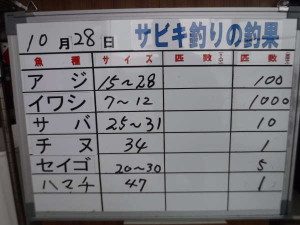 10月28日 サビキ釣りの釣果
魚種 サイズ 匹数 匹数
アジ 15～28 100
イワシ 7～12 1000
サバ 25～31 10
チヌ 34 1
セイゴ 20～30 5
ハマチ 47 1